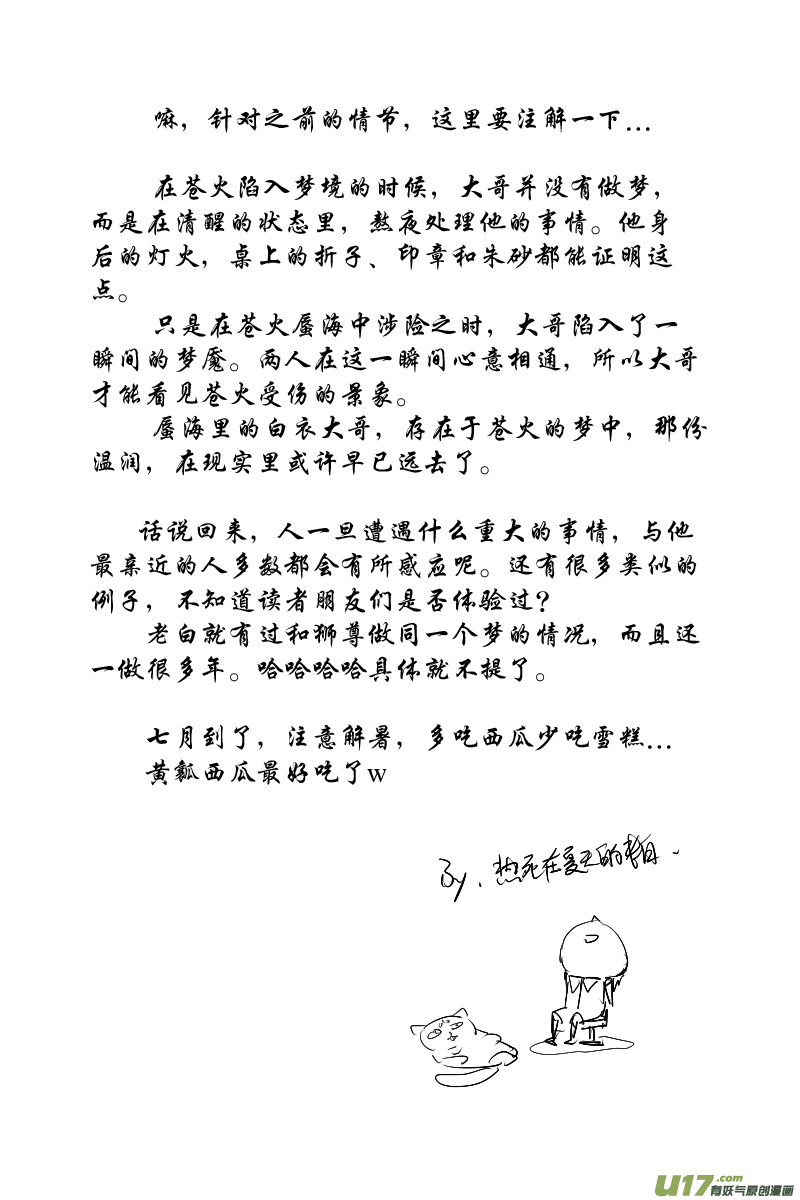 嘛，针对之前的情节，这里要注解一下...
在苍火陷入梦境的时候，大哥并没有做梦，
而是在清醒的状态里，熬夜处理他的事情。他身
后的灯火，桌上的折子、印章和朱砂都能证明这
点。
只是在苍火蜃海中涉险之时，大哥陷入了一
瞬间的梦魇。两人在这一瞬间心意相通，所以大哥
才能看见苍火受伤的景象。
蜃海里的白衣大哥，存在于苍火的梦中，那份
温润，在现实里或许早已远去了。
话说回来，人一旦遭遇什么重大的事情，与他
最亲近的人多数都会有所感应呢。还有很多类似的
例子，不知道读者朋友们是否体验过？
老白就有过和狮尊做同一个梦的情况，而且还
一做很多年。哈哈哈哈具体就不提了。
七月到了，注意解暑，多吃西瓜少吃雪糕...
黄瓤西瓜最好吃了w
By.热死在夏天的老白~
U17 有妖气原创漫画